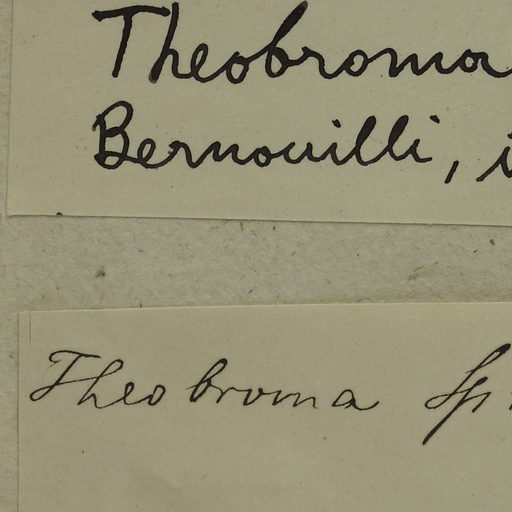 Theobroma
Bernouilli, i
Theobroma Sp